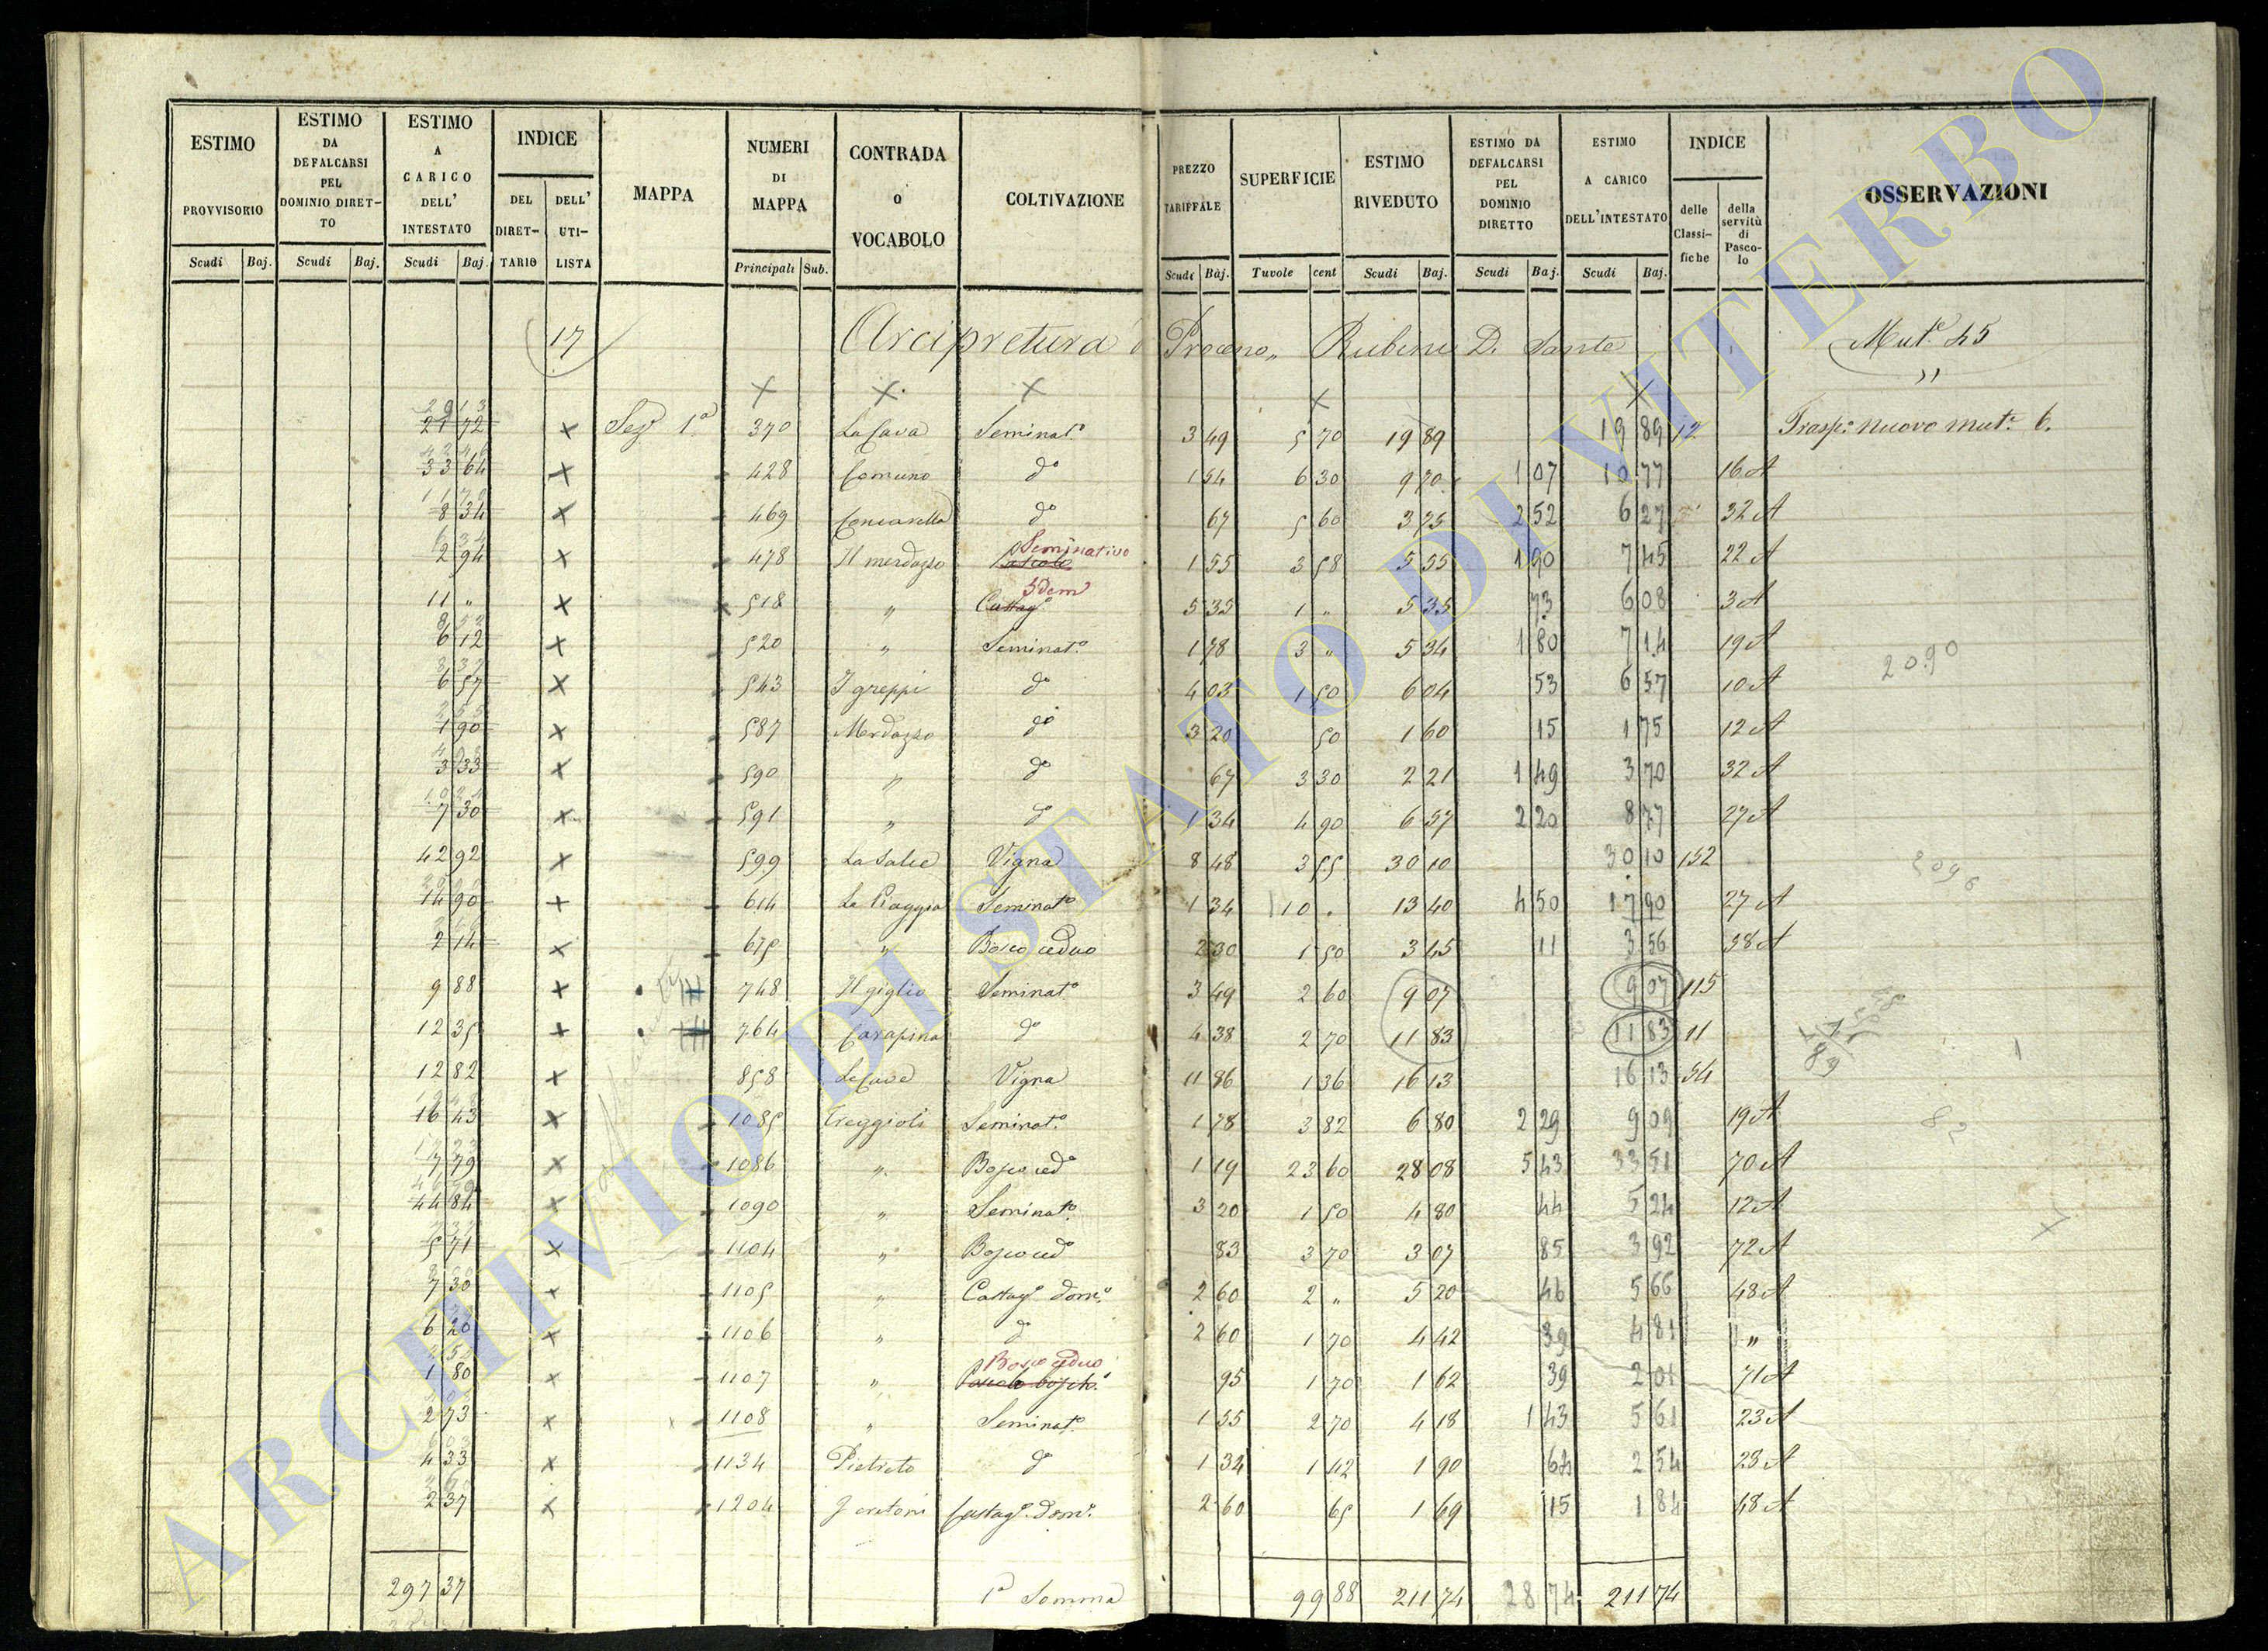 ESTIMO PROVVISORIO | ESTIMO DA DEFALCARSI PEL DOMINIO DIRET-TO | ESTIMO A CARICO DELL' INTESTATO | INDICE DEL DIRET-TARIO | DELL' UTI-LISTA | MAPPA | NUMERI DI MAPPA | CONTRADA O VOCABOLO | COLTIVAZIONE | PREZZO TARIFFALE | SUPERFICIE | ESTIMO RIVEDUTO | ESTIMO DA DEFALCARSI PEL DOMINIO DIRETTO | ESTIMO A CARICO DELL'INTESTATO | INDICE delle Classi-fiche | della servitù di Pasco-lo | OSSERVAZIONI
Scudi Baj. Scudi Baj. Scudi Baj. Principali Sub. Scudi Baj. Tuvole cent Scudi Baj. Scudi Baj. Scudi Baj.
17 Arcipretura Proceno „ Rubini D. Sante Mut.e 45
× × × × ×
21 72 × Sez.e 1a 370 La Cava Seminat.o 3 49 5 70 19 89 19 89 12 Trasp.o nuovo mut.e 6.
33 64 × 428 Comuno do 1 54 6 30 9 70 1 07 10 77 16 A
8 34 × 469 do 67 5 60 3 75 2 52 6 27 32 A
Seminativo
2 94 × 478 Il merdazzo Pascolo 1 55 3 58 5 55 1 90 7 45 22 A
Idem
11 „ × 518 „ Castag.o 5 35 1 „ 5 35 73 6 08 3 A
6 12 × 520 „ Seminat.o 1 78 3 „ 5 34 1 80 7 14 19 A
6 57 × 543 I greppi do 4 03 1 50 6 04 53 6 57 10 A 2090
1 90 × 587 Merdazzo do 3 20 50 1 60 15 1 75 12 A
3 33 × 590 „ do 67 3 30 2 21 1 49 3 70 32 A
7 30 × 591 „ do 1 34 4 90 6 57 2 20 8 77 27 A
42 92 × 599 La Salce Vigna 8 48 3 55 30 10 30 10 152
14 90 × 614 La Piaggia Seminat.o 1 34 10 . 13 40 4 50 17 90 27 A
2 14 × 675 „ Bosco ceduo 2 30 1 50 3 45 11 3 56 38 A
9 88 × 748 Il giglio Seminat.o 3 49 2 60 9 07 9 07 115
12 35 × 764 Carapina do 4 38 2 70 11 83 11 83 11
12 82 × 858 Le Cave Vigna 11 86 1 36 16 13 16 13 54
16 43 × 1085 Treggioli Seminat.o 1 78 3 82 6 80 2 29 9 09 19 A 82
7 79 × 1086 „ Bosco ced.o 1 19 23 60 28 08 5 43 33 51 70 A
44 84 × 1090 „ Seminat.o 3 20 1 50 4 80 44 5 24 12 A
5 71 × 1104 „ Bosco ced.o 83 3 70 3 07 85 3 92 72 A
7 30 × 1105 „ Castag.o dom.o 2 60 2 „ 5 20 46 5 66 48 A
6 20 × 1106 „ do 2 60 1 70 4 42 39 4 81 „
Bosco ceduo
1 80 × 1107 „ Pascolo bosch.o 95 1 70 1 62 39 2 01 71 A
2 73 × 1108 „ Seminat.o 1 55 2 70 4 18 1 43 5 61 23 A
4 33 × 1134 Pietreto do 1 34 1 42 1 90 64 2 54 28 A
2 37 × 1204 Castag.o dom.o 2 60 65 1 69 15 1 84 48 A
297 37 1a Somma 99 88 211 74 28 74 211 74
ARCHIVIO DI STATO DI VITERBO